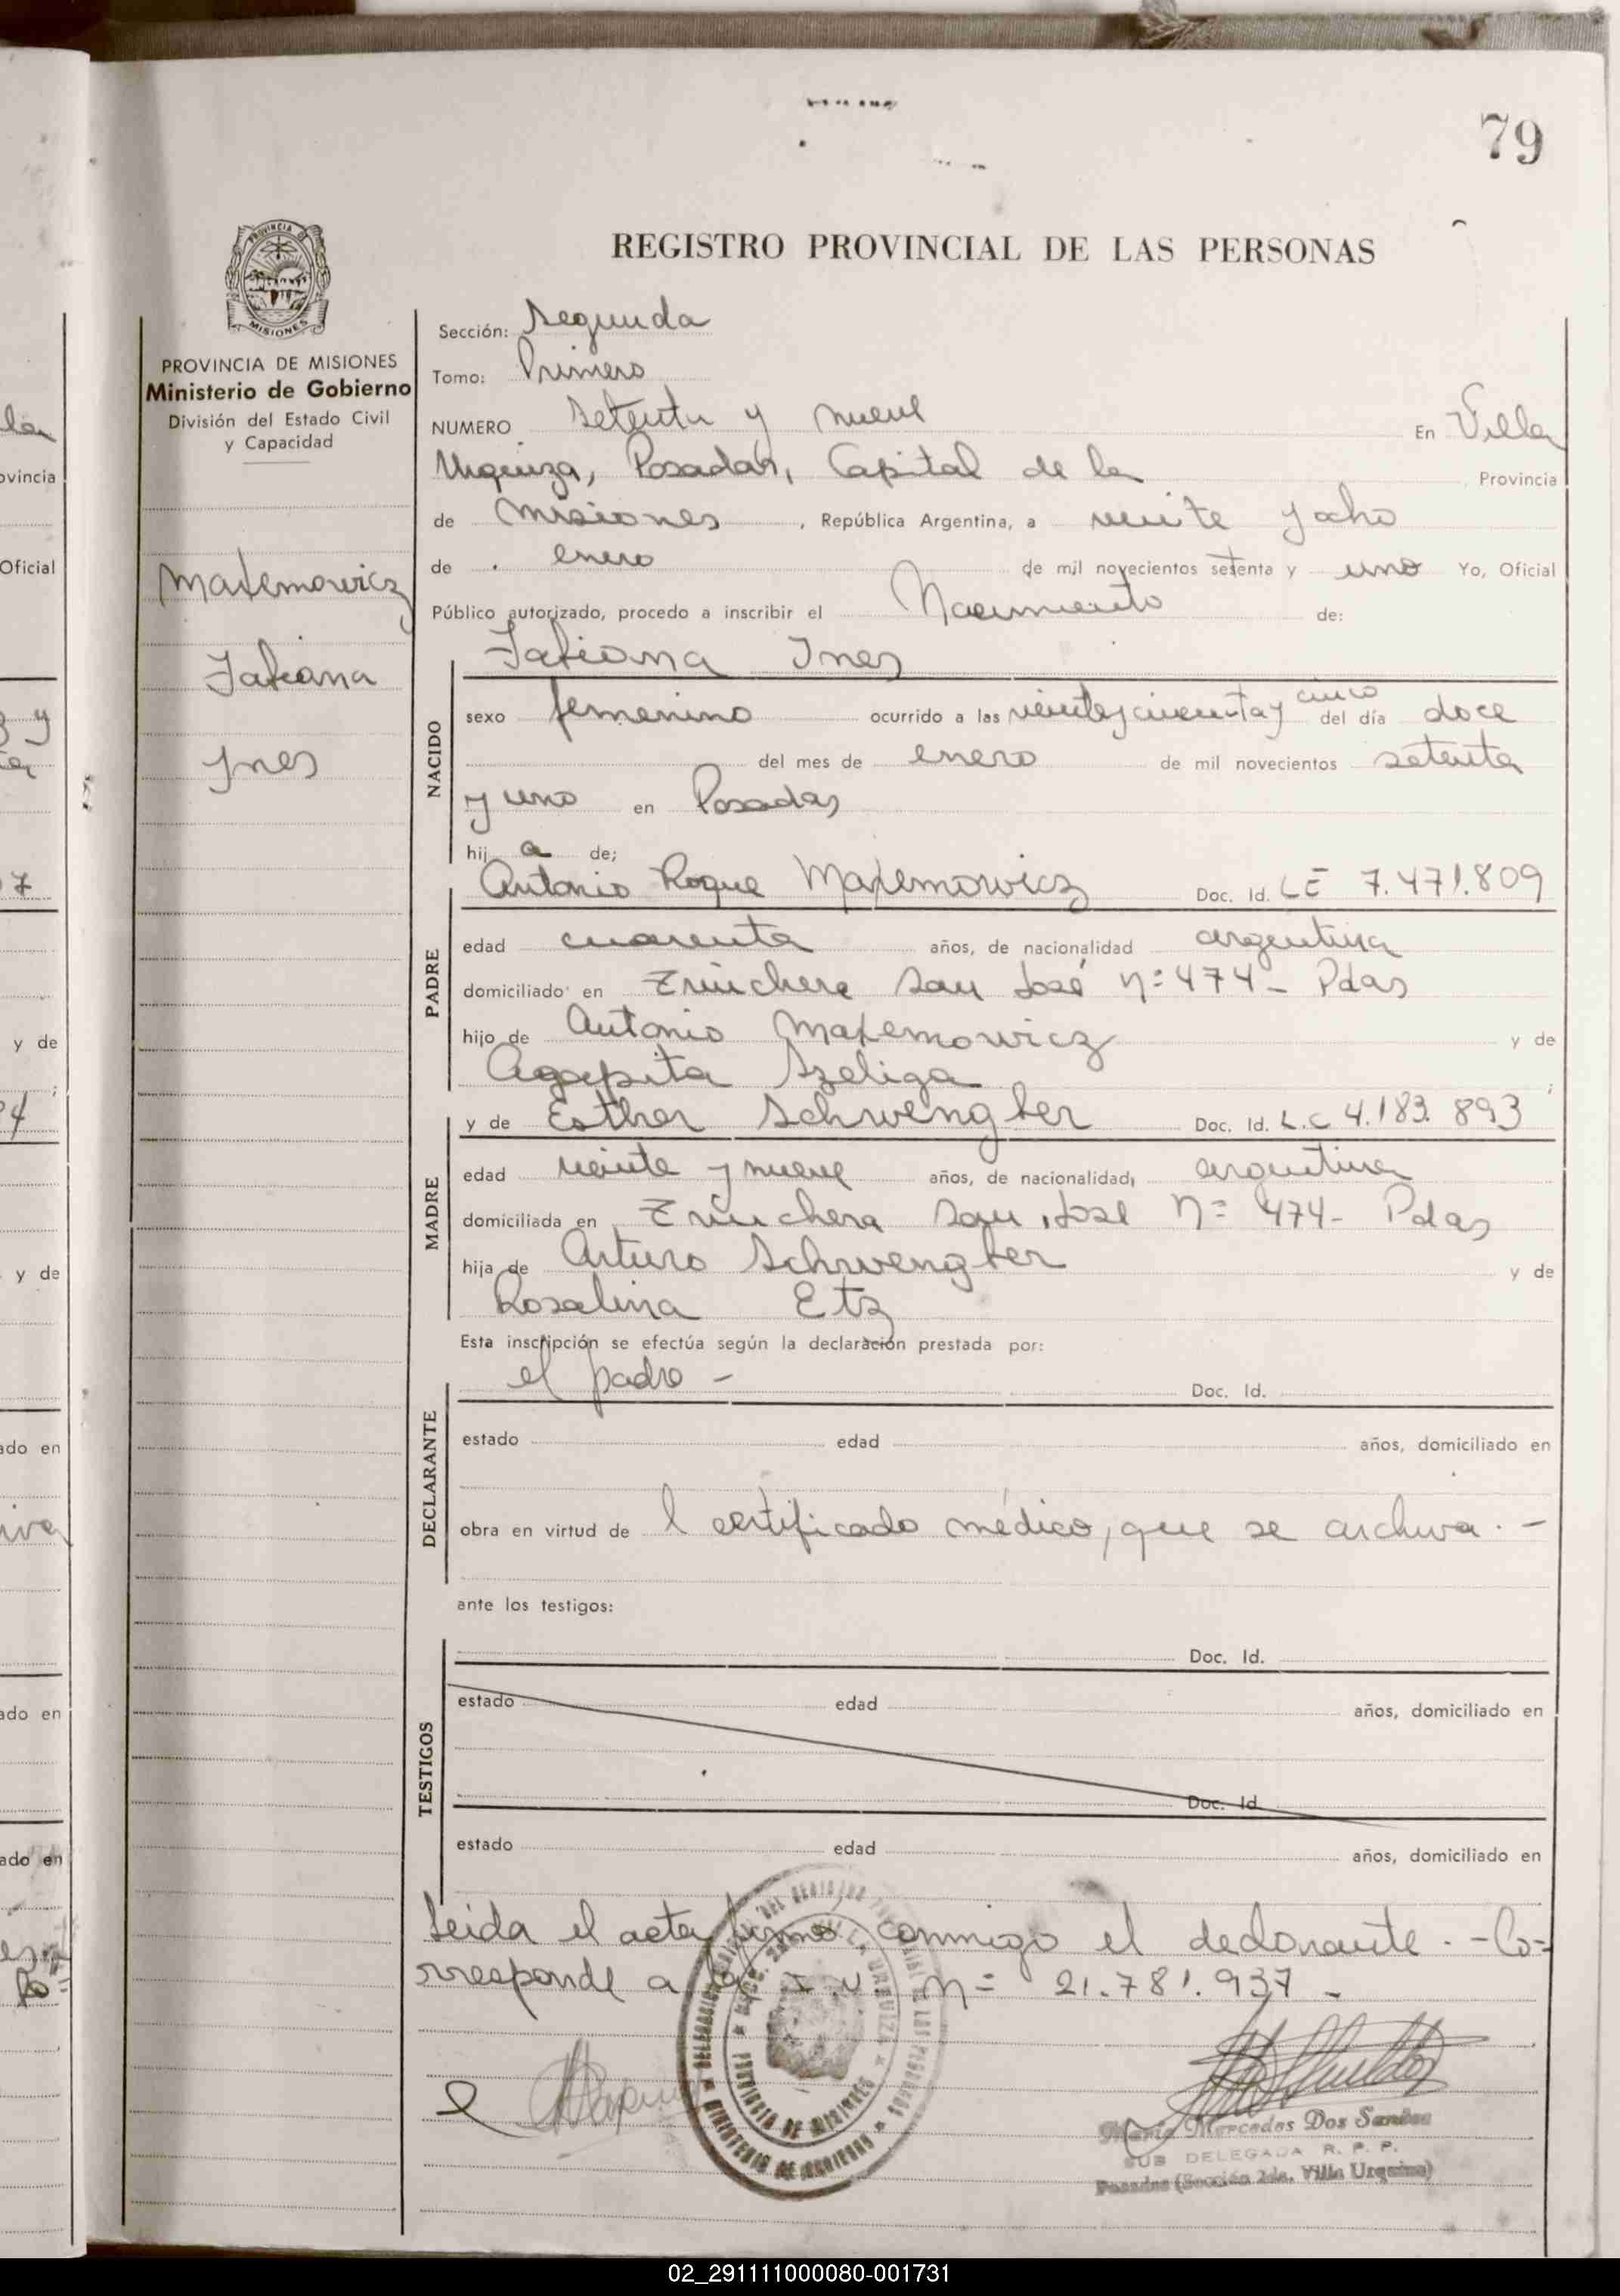 79
REGISTRO PROVINCIAL DE LAS PERSONAS
PROVINCIA DE MISIONES
Ministerio de Gobierno
División del Estado Civil
y Capacidad
Maxemowicz
Tatiana
Ines
Sección: Segunda
Tomo: Primero
NUMERO setenta y nueve En Villa
Urquiza, Posadas, Capital de la , Provincia
de Misiones , República Argentina, a veinte y ocho
de enero de mil novecientos setenta y uno Yo, Oficial
Público autorizado, procedo a inscribir el Nacimiento de:
Tatiana Ines
NACIDO
sexo femenino ocurrido a las veinte y cincuenta y cinco del día doce
del mes de enero de mil novecientos setenta
y uno en Posadas
hij a de;
Antonio Roque Maxemowicz Doc. Id. LE 7.471.809
PADRE
edad cuarenta años, de nacionalidad argentina
domiciliado en Trinchera San José n: 474 - Pdas
hijo de Antonio Maxemowicz y de
Agapita Szeliga ;
y de Esther Schwengber Doc. Id. L.C 4.183.893
MADRE
edad veinte y nueve años, de nacionalidad, argentina
domiciliada en Trinchera San José n= 474- Pdas
hija de Arturo Schwengber y de
Rosalina Etz
Esta inscripción se efectúa según la declaración prestada por:
el padre - Doc. Id.
DECLARANTE
estado edad años, domiciliado en
obra en virtud de l certificado médico, que se archiva. -
ante los testigos:
Doc. Id.
TESTIGOS
estado edad años, domiciliado en
Doc. Id.
estado edad años, domiciliado en
Leida el acta firma conmigo el declarante. - Co=
rresponde a la n= 21.781.937 -
PROVINCIA DE MISIONES
Maria Mercedes Dos Santos
SUB DELEGADA R. P. P.
Posadas (Sección 2da. Villa Urquiza)
02_291111000080-001731